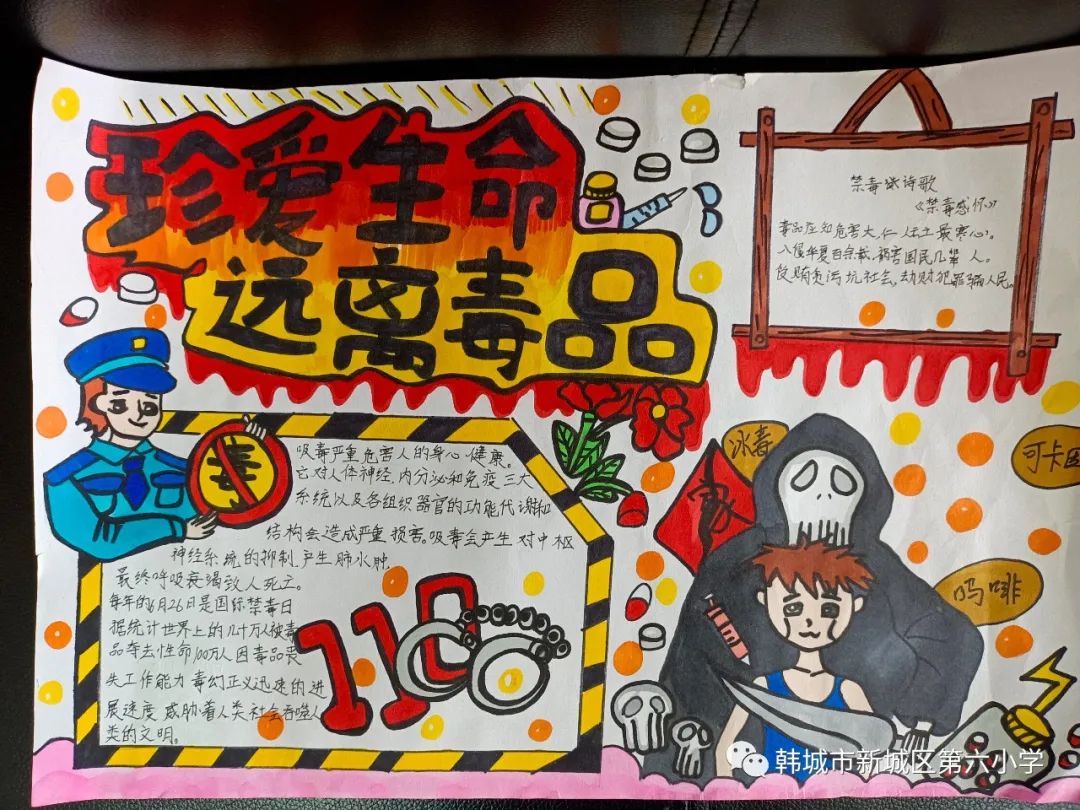 珍爱生命
远离毒品
禁毒诗歌
《禁毒感怀》
毒品应知危害大
最寒心。
祸害国民几辈人。
贪污坑社会，劫财犯罪骗人民。
毒
吸毒严重危害人的身心健康。
它对人体神经，内分泌和免疫三大
系统以及各组织器官的功能代谢和
结构会造成严重损害。吸毒会产生对中枢
神经系统的抑制，产生肺水肿，
最终呼吸衰竭致人死亡。
每年的6月26日是国际禁毒日
据统计世界上的几十万人被毒
品夺去性命100万人因毒品丧
失工作能力毒幻正义迅速的进
展速度威胁着人类社会吞噬人
类的文明。
110
冰毒
可卡因
吗啡
韩城市新城区第六小学